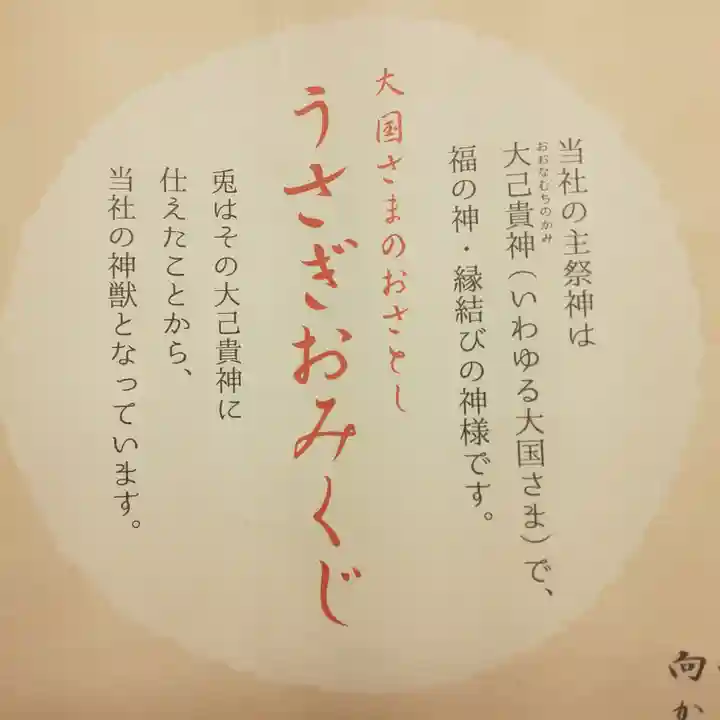 当社の主祭神は
おおなむちのかみ
大己貴神(いわゆる大国さま)で、
福の神・縁結びの神様です。
大国さまのおさとし
うさぎおみくじ
兎はその大己貴神に
仕えたことから、
当社の神獣となっています。
向か